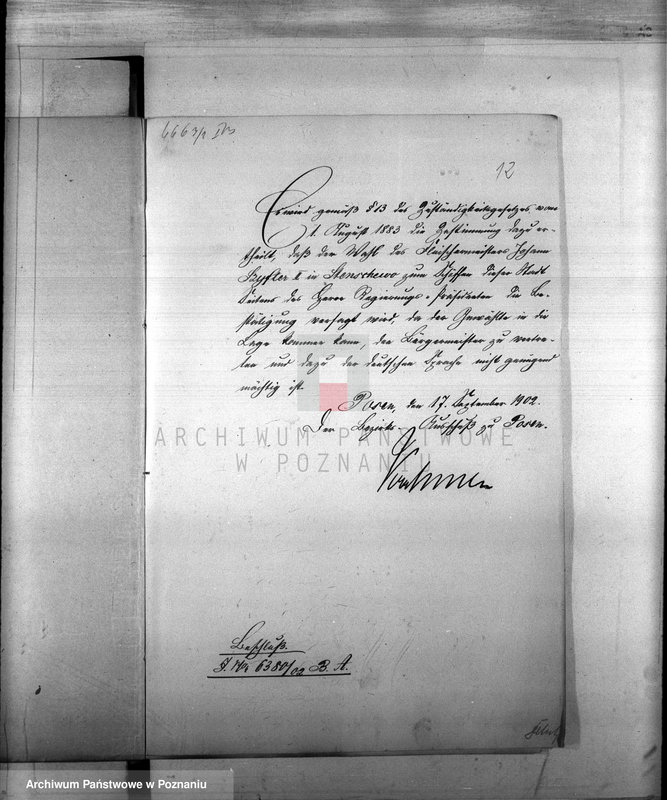 6663/2 IVs
12
Es wird gemäß § 13 des Zuständigkeitsgesetzes vom
1. August 1883 die Zustimmung dazu er-
theilt, daß der Wahl des Fleischermeisters Johann
I in Stenschewo zum Schöffen dieser Stadt
Seitens des Herrn Regierungs-Präsidenten die Be-
stätigung versagt wird, da der Gewählte in die
Lage kommen kann, den Bürgermeister zu vertre-
ten und dazu der deutschen Sprache nicht genügend
mächtig ist.
Posen, den 17. September 1902.
Der Bezirks-Ausschuß zu Posen.
Beschluß.
J. No 6380/02 B. A.
ARCHIWUM PAŃSTWOWE
W POZNANIU
Archiwum Państwowe w Poznaniu